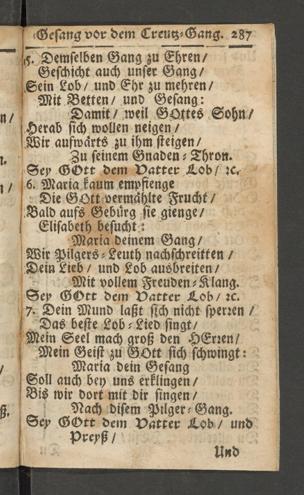 Gesang vor dem Creutz-Gang. 287
5. Demselben Gang zu Ehren /
Geschicht auch unser Gang /
Sein Lob / und Ehr zu mehren /
Mit Betten / und Gesang:
Damit / weil GOttes Sohn /
Herab sich wollen neigen /
Wir aufwärts zu ihm steigen /
Zu seinem Gnaden-Thron.
Sey GOtt dem Vatter Lob / ꝛc.
6. Maria kaum empfienge
Die GOtt vermählte Frucht /
Bald aufs Gebürg sie gienge /
Elisabeth besucht:
Maria deinem Gang /
Wir Pilgers-Leuth nachschreitten /
Dein Lieb / und Lob ausbreiten /
Mit vollem Freuden-Klang.
Sey GOtt dem Vatter Lob / ꝛc.
7. Dein Mund laßt sich nicht sperren /
Das beste Lob-Lied singt /
Mein Seel mach groß den HErren /
Mein Geist zu GOtt sich schwingt:
Maria dein Gesang
Soll auch bey uns erklingen /
Bis wir dort mit dir singen /
Nach disem Pilger-Gang.
Sey GOtt dem Vatter Lob / und
Preyß /
Und